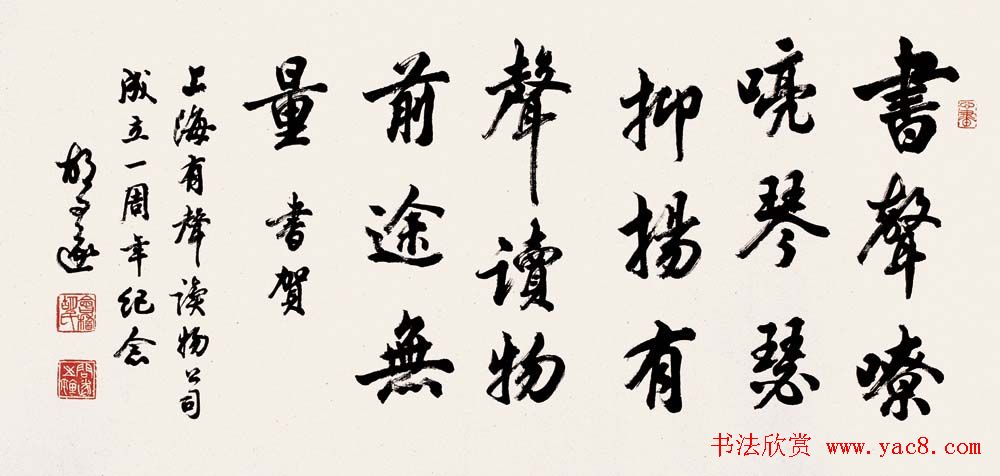 書聲嘹
喨琴瑟
抑揚有
聲讀物
前途無
量 書賀
上海有聲读物公司
成立一周年纪念
胡问遂
书法欣赏 www.yac8.com